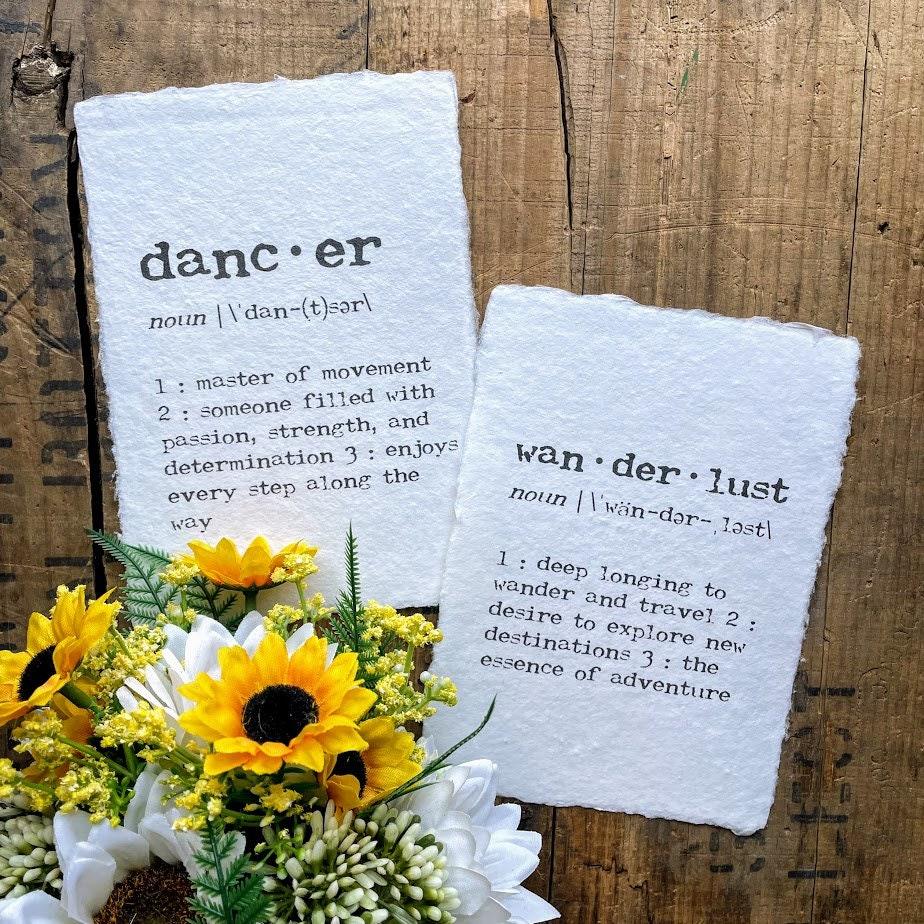 danc·er
noun |\ˈdan-(t)sər\
1 : master of movement
2 : someone filled with
passion, strength, and
determination 3 : enjoys
every step along the
way
wan·der·lust
noun |\ˈwän-dər-ˌləst\
1 : deep longing to
wander and travel 2 :
desire to explore new
destinations 3 : the
essence of adventure